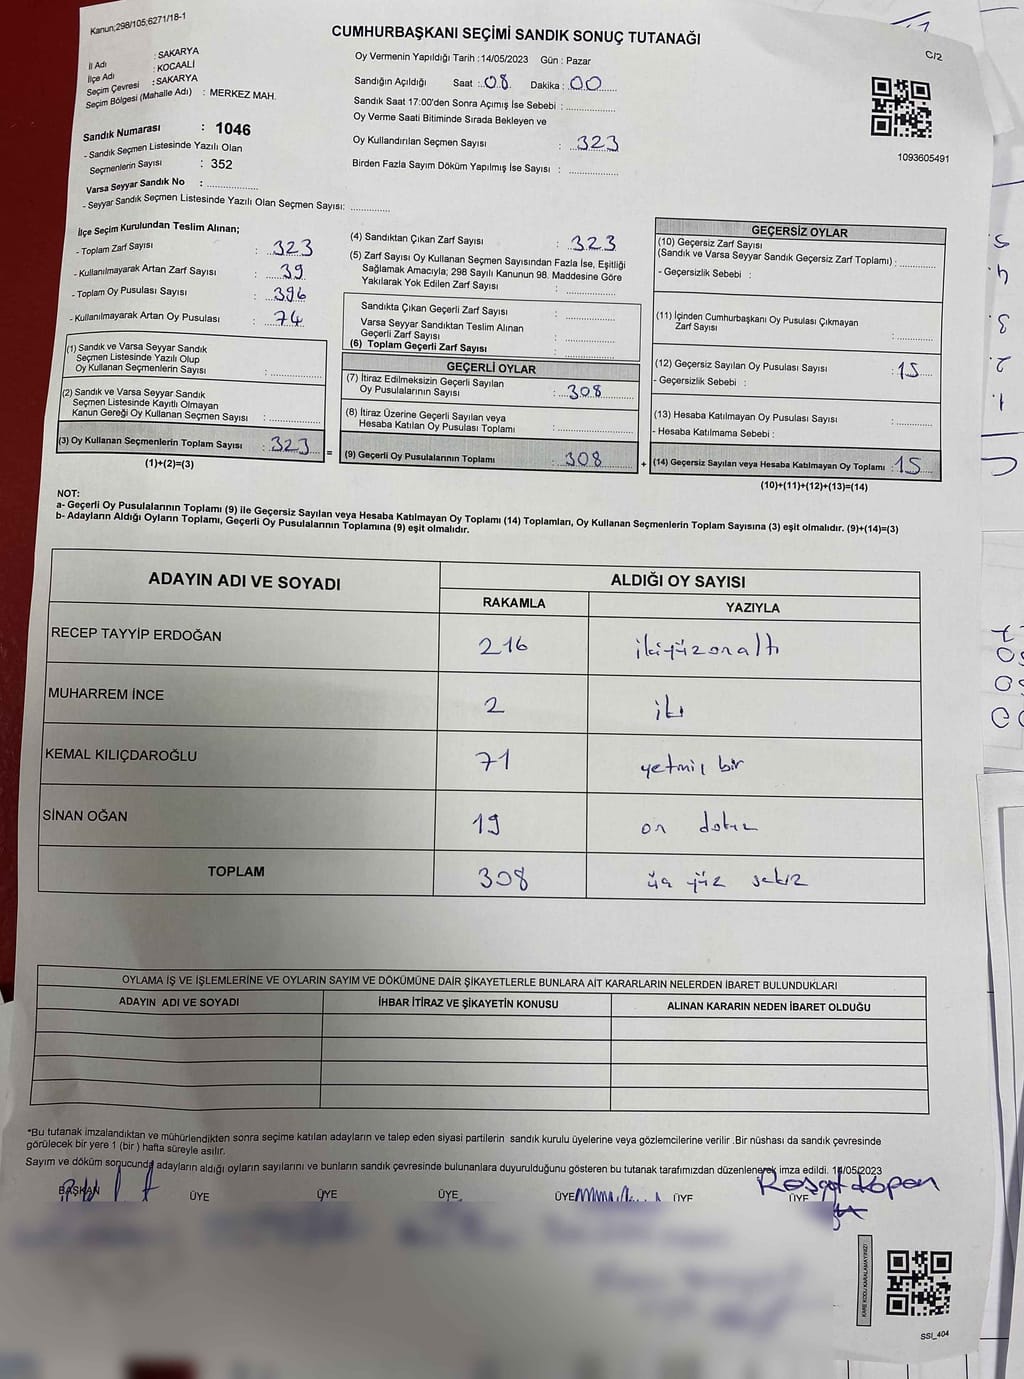 Kanun;298/105;6271/18-1
CUMHURBAŞKANI SEÇİMİ SANDIK SONUÇ TUTANAĞI
C/2
İl Adı : SAKARYA
İlçe Adı : KOCAALİ
Seçim Çevresi : SAKARYA
Seçim Bölgesi (Mahalle Adı) : MERKEZ MAH.
Sandık Numarası : 1046
- Sandık Seçmen Listesinde Yazılı Olan
Seçmenlerin Sayısı : 352
Varsa Seyyar Sandık No :
- Seyyar Sandık Seçmen Listesinde Yazılı Olan Seçmen Sayısı:
Oy Vermenin Yapıldığı Tarih :14/05/2023 Gün : Pazar
Sandığın Açıldığı Saat : 08 Dakika : 00
Sandık Saat 17:00'den Sonra Açımış İse Sebebi :
Oy Verme Saati Bitiminde Sırada Bekleyen ve
Oy Kullandırılan Seçmen Sayısı : 323
Birden Fazla Sayım Döküm Yapılmış İse Sayısı :
1093605491
İlçe Seçim Kurulundan Teslim Alınan;
- Toplam Zarf Sayısı : 323
- Kullanılmayarak Artan Zarf Sayısı : 39
- Toplam Oy Pusulası Sayısı : 396
- Kullanılmayarak Artan Oy Pusulası : 74
(1) Sandık ve Varsa Seyyar Sandık
Seçmen Listesinde Yazılı Olup
Oy Kullanan Seçmenlerin Sayısı :
(2) Sandık ve Varsa Seyyar Sandık
Seçmen Listesinde Kayıtlı Olmayan
Kanun Gereği Oy Kullanan Seçmen Sayısı :
(3) Oy Kullanan Seçmenlerin Toplam Sayısı : 323
(1)+(2)=(3)
=
(4) Sandıktan Çıkan Zarf Sayısı : 323
(5) Zarf Sayısı Oy Kullanan Seçmen Sayısından Fazla İse, Eşitliği
Sağlamak Amacıyla; 298 Sayılı Kanunun 98. Maddesine Göre
Yakılarak Yok Edilen Zarf Sayısı :
Sandıkta Çıkan Geçerli Zarf Sayısı :
Varsa Seyyar Sandıktan Teslim Alınan
Geçerli Zarf Sayısı :
(6) Toplam Geçerli Zarf Sayısı :
GEÇERLİ OYLAR
(7) İtiraz Edilmeksizin Geçerli Sayılan
Oy Pusulalarının Sayısı : 308
(8) İtiraz Üzerine Geçerli Sayılan veya
Hesaba Katılan Oy Pusulası Toplamı :
(9) Geçerli Oy Pusulalarının Toplamı : 308
+
GEÇERSİZ OYLAR
(10) Geçersiz Zarf Sayısı
(Sandık ve Varsa Seyyar Sandık Geçersiz Zarf Toplamı) :
- Geçersizlik Sebebi :
(11) İçinden Cumhurbaşkanı Oy Pusulası Çıkmayan
Zarf Sayısı :
(12) Geçersiz Sayılan Oy Pusulası Sayısı : 15
- Geçersizlik Sebebi :
(13) Hesaba Katılmayan Oy Pusulası Sayısı :
- Hesaba Katılmama Sebebi :
(14) Geçersiz Sayılan veya Hesaba Katılmayan Oy Toplamı : 15
(10)+(11)+(12)+(13)=(14)
NOT:
a- Geçerli Oy Pusulalarının Toplamı (9) ile Geçersiz Sayılan veya Hesaba Katılmayan Oy Toplamı (14) Toplamları, Oy Kullanan Seçmenlerin Toplam Sayısına (3) eşit olmalıdır. (9)+(14)=(3)
b- Adayların Aldığı Oyların Toplamı, Geçerli Oy Pusulalarının Toplamına (9) eşit olmalıdır.
ADAYIN ADI VE SOYADI ALDIĞI OY SAYISI
RAKAMLA YAZIYLA
RECEP TAYYİP ERDOĞAN 216 ikiyüzonaltı
MUHARREM İNCE 2 iki
KEMAL KILIÇDAROĞLU 71 yetmiş bir
SİNAN OĞAN 19 on dokuz
TOPLAM 308 üç yüz sekiz
OYLAMA İŞ VE İŞLEMLERİNE VE OYLARIN SAYIM VE DÖKÜMÜNE DAİR ŞİKAYETLERLE BUNLARA AİT KARARLARIN NELERDEN İBARET BULUNDUKLARI
ADAYIN ADI VE SOYADI İHBAR İTİRAZ VE ŞİKAYETİN KONUSU ALINAN KARARIN NEDEN İBARET OLDUĞU
*Bu tutanak imzalandıktan ve mühürlendikten sonra seçime katılan adayların ve talep eden siyasi partilerin sandık kurulu üyelerine veya gözlemcilerine verilir .Bir nüshası da sandık çevresinde
görülecek bir yere 1 (bir ) hafta süreyle asılır.
Sayım ve döküm sonucunda adayların aldığı oyların sayılarını ve bunların sandık çevresinde bulunanlara duyurulduğunu gösteren bu tutanak tarafımızdan düzenlenerek imza edildi. 14/05/2023
BAŞKAN ÜYE ÜYE ÜYE ÜYE ÜYE ÜYE
KARE KODU KARALAMAYINIZ!
SSI_404